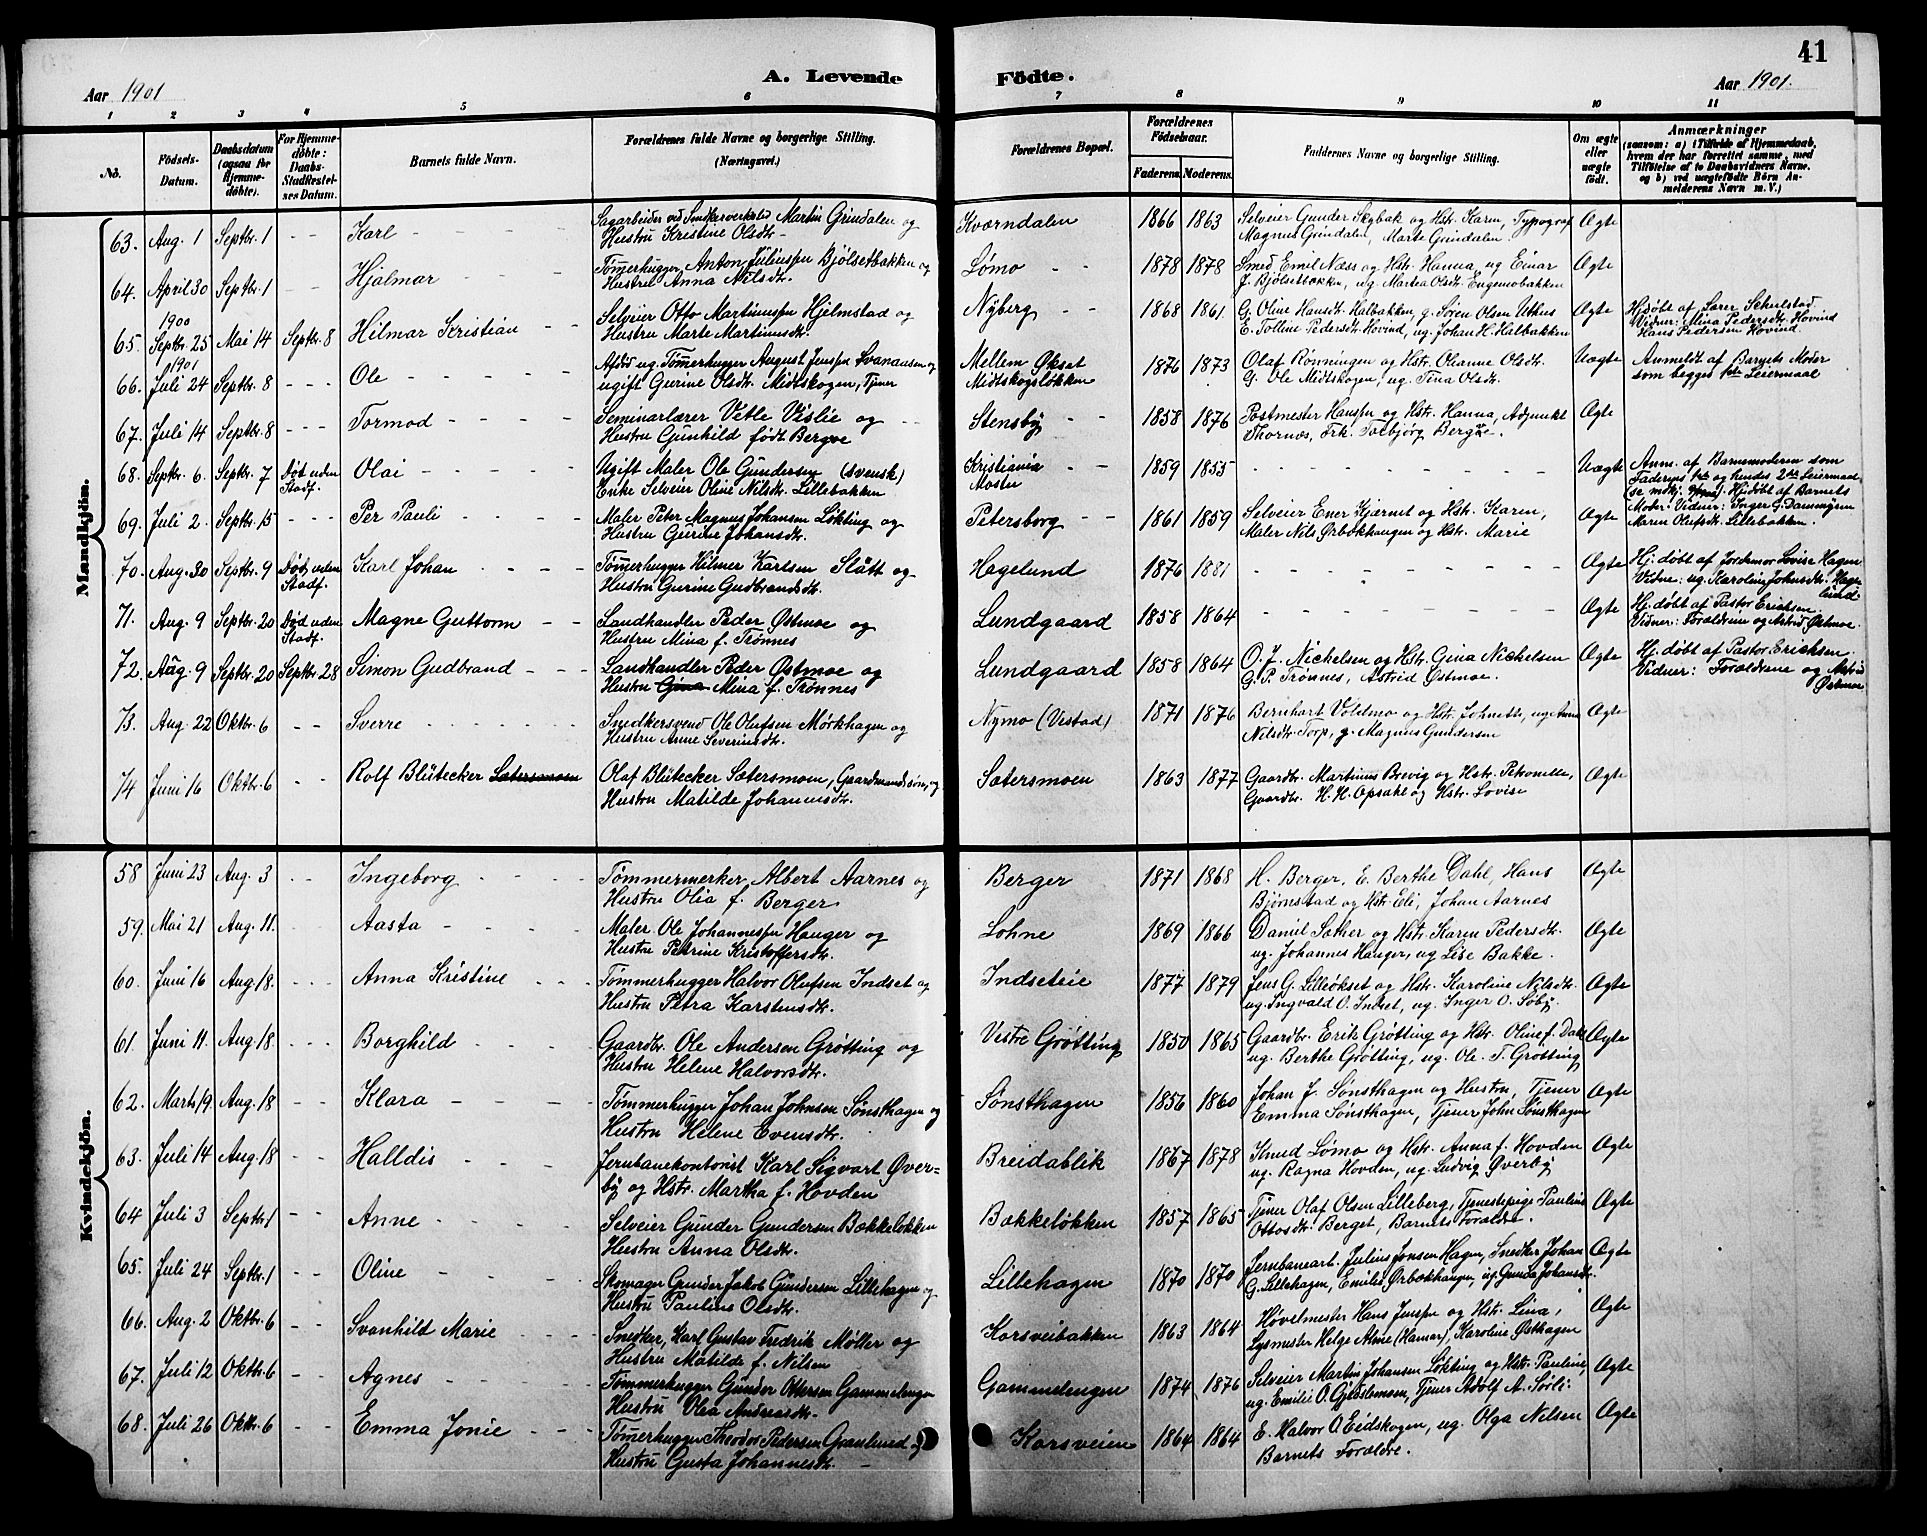 41
A. Levende Födte.
Aar 1901
Aar 1901.
1 2 3 4 5 6 7 8 9 10 11
No.
Födsels-Datum.
Daabsdatum (ogsaa for Hjemmedöbte).
For Hjemmedöbte: Daabs-Stadfæstelses Datum.
Barnets fulde Navn.
Forældrenes fulde Navne og borgerlige Stilling. (Næringsvei.)
Forældrenes Bopæl.
Forældrenes Födselsaar.
Faderens. Moderens.
Faddernes Navne og borgerlige Stilling.
Om ægte eller uægte födt.
Anmærkninger
(saasom: a) i Tilfælde af Hjemmedaab, hvem der har forrettet samme, med Tilföielse af to Daabsvidners Navne, og b) ved uægtefödte Börn Anmelderens Navn m. V.)
Mandkjön.
63. Aug. 1 Septbr. 1 - - Karl
Sagarbeider ved Snedkerverksted Martin Grindalen og
Hustru Kristine Olsdtr.
Kværndalen 1866 1863
Selveier Gunder Skybak og Hstr. Karen, Typograf
Magnus Grindalen, Marte Grindalen.
Ægte
64. April 30 Septbr. 1 Hjalmar
Tømmerhugger Anton Juliussen Bjölsetbakken og
Hustru Anna Nilsdtr.
Lømo 1878 1878
Smed Emil Næss og Hstr. Hanna, ug Einar
J. Bjölsetbakken, ug. Martea Olsdtr. Engemobakken
Ægte
65. 1900 Septbr. 25 Mai 14 Septbr. 8 Hilmar Kristian
Selveier Otto Martinussen Hjelmstad og
Hustru Marte Martinusdtr.
Nyberg 1868 1861
G. Oline Hansdtr. Halbakken, g. Sören Olsen Uthus
E. Tolline Pedersdtr. Hovind, ug. Johan H. Halbakken
Ægte
Hjdöbt af Lærer Schulstad
Vidner: Mina Pedersdtr. Hovind
Hans Pedersen Hovind
66. 1901 Juli 24 Septbr. 8 - - - Ole
Afdöd ug. Tømmerhugger August Jensen Svanaasen og
ugift Gurine Olsdtr. Midtskogen, Tjener
Mellem Økset
Midtskogsløkken 1876 1873
Olaf Rönningen og Hstr. Oleanne Olsdtr.
G. Ole Midtskogen, ug. Tina Olsdtr.
Uægte
Anmeldt af Barnets Moder
som begges 1ste Leiermaal
67. Juli 14 Septbr. 8 - - - Tormod
Seminarlærer Vetle Vislie og
Hustru Gunhild født Bergve
Stensby 1858 1876
Postmester Hanssen og Hstr. Hanna, Adjunkt
Thornæs, Frk. Torbjörg Bergve.
Ægte
68. Septbr. 6. Septbr. 7 Død uden Stadf. Olai
Ugift Maler Ole Gundersen (svensk)
Enke Selveier Oline Nilsdtr. Lillebakken
Kristiania
Moster 1859 1855
Uægte
Anm. af Barnemoderen som
Faderens 1ste og hendes 2det Leiermaal
Hjdöbt af Barnets
Moder. Vidner: Inger G. Damengen
Maren Olufsdtr. Lillebakken.
69. Juli 2. Septbr. 15 - - - Per Pauli
Maler Peter Magnus Johansen Lökting og
Hustru Gurine Johansdtr.
Petersborg 1861 1859
Selveier Ener Kjernet og Hstr. Karen,
Maler Nils Ørbækhaugen og Hstr. Marie
Ægte
70. Aug. 30 Septbr. 9 Död uden Stadf. Karl Johan
Tømmerhugger Hilmer Karlsen Slätt og
Hustru Gurine Gudbrandsdtr.
Hagelund 1876 1881
Ægte
Hj. döbt af Jordemor Lovise Hagen
Vidne: ug. Karoline Johnsdtr. Hagelund
71. Aug. 9 Septbr. 20 Død uden Stadf. Magne Guttorm
Landhandler Peder Østmoe og
Hustru Mina f. Trønnes
Lundgaard 1858 1864
Ægte
Hj. døbt af Pastor Erichsen
Vidner: Forældrene og Astrid Østmoe.
72. Aug. 9 Septbr. 20 Septbr. 28 Simon Gudbrand
Landhandler Peder Østmoe og
Hustru Gina Mina f. Trønnes
Lundgaard 1858 1864
O. J. Nickelsen og Hstr. Gina Nickelsen
G. P. Trønnes, Astrid Østmoe.
Ægte
Hj. døbt af Pastor Erichsen
Vidner: Forældrene og Astrid
Østmoe
73. Aug. 22 Oktbr. 6 - - Sverre
Snedkersvend Ole Olufsen Mørkhagen og
Hustru Anne Severinsdtr.
Nymo (Vestad) 1871 1876
Bernhart Voldmo og Hstr. Johnette, ug Anne
Nilsdtr. Torp, g. Magnus Gundersen
Ægte
74 Juni 16 Oktbr. 6 - - Rolf Blütecker Sætersmoen
Olaf Blütecker Sætersmoen, Gaardmandssøn, og
Hustru Matilde Johannesdtr.
Sætersmoen 1863 1877
Gaardbr. Martinus Brevig og Hstr. Petronelle,
Gaardbr. H. H. Opsahl og Hstr. Lovise
Ægte
Kvindekjön.
58 Juni 23 Aug. 3 - - Ingeborg
Tömmermerker Albert Aarnes og
Hustru Olia f. Berger
Berger 1871 1868
H. Berger, E. Berthe Dahl, Hans
Bjørnstad og Hstr. Eli, Johan Aarnes
Ægte
59. Mai 21 Aug. 11. Aasta
Maler Ole Johannessen Hauger og
Hustru Petrine Kristoffersdtr.
Lohne 1869 1866
Daniel Sæther og Hstr. Karen Pedersdtr.
ug. Johannes Hauger, ug Lise Bakke.
Ægte
60. Juni 16 Aug. 18. - - - Anna Kristine
Tømmerhugger Halvor Olufsen Indset og
Hustru Petra Karstensdtr.
Indseteie 1877 1879
Jens G. Lilleökset og Hstr. Karoline Nilsdtr.
ug. Ingvald O. Indset, ug. Inger O. Søby.
Ægte
61. Juni 11. Aug. 18. - - - Borghild
Gaardbr. Ole Andersen Grøtting og
Hustru Helene Halvorsdtr.
Vestre Grøtting 1850 1865
Gaardbr. Erik Grøtting og Hstr. Oline f. Dahl
ug. Berthe Grøtting, ug. Ole T. Grøtting
Ægte
62. Marts 19. Aug. 18 - - Klara
Tømmerhugger Johan Johnsen Sønsthagen og
Hustru Helene Evensdtr.
Sønsthagen 1856 1860
Johan J. Sønsthagen og Hustru, Tjener
Emma Sønsthagen, Tjener John Sønsthagen
Ægte
63. Juli 14 Aug. 18 - - Halldis
Jernbanekontorist Karl Sigvart Øver-
by og Hstr. Martha f. Hovden
Breidablik 1867 1878
Knud Lømo og Hstr. Anna f. Hovden
ug. Ragna Hovden, ug. Ludvig Øverby
Ægte
64 Juli 3 Septbr. 1 - - Anne
Selveier Gunder Gundersen Bækkeløkken
Hustru Anna Olsdtr.
Bækkeløkken 1857 1865
Tjener Olaf Olsen Lilleberg, Tjenestepige Pauline
Ottosdtr. Berget, Barnets Forældre.
Ægte
65. Juli 24 Septbr. 1 - - Oline
Skomager Gunder Jakob Gundersen Lillehagen og
Hustru Pauline Olsdtr.
Lillehagen 1870 1870
Jernbanearb. Julius Jonsen Hagen, Snedker Johan
G. Lillehagen, Emilie Ørbækhaugen, ug. Gunda Johansdtr.
Ægte
66. Aug. 2 Oktbr. 6 - - Svanhild Marie
Snedker, Karl Gustav Fredrik Möller og
Hustru Matilde f. Nilsen
Korsveibakken 1863 1864
Høvelmester Hans Jenssen og Hstr. Lina,
Lysmester Helge Alme (Hamar), Karoline Østhagen
Ægte
67. Juli 12 Oktbr. 6 - - Agnes
Tømmerhugger Gunder Ottersen Gammelengen
Hustru Olea Andreasdtr.
Gammelengen 1874 1876
Selveier Martin Johansen Løkting og Hstr. Pauline,
ug. Emilie O. Gjedslemoen, Tjener Adolf A. Sörli
Ægte
68. Juli 26 Oktbr. 6 - - Emma Jonie
Tømmerhugger Theodor Pedersen Granlund og
Hustru Gusta Johannesdtr.
Korsveien 1864 1864
E. Halvor O. Eidskogen, ug. Olga Nilsen
Barnets Forældre.
Ægte